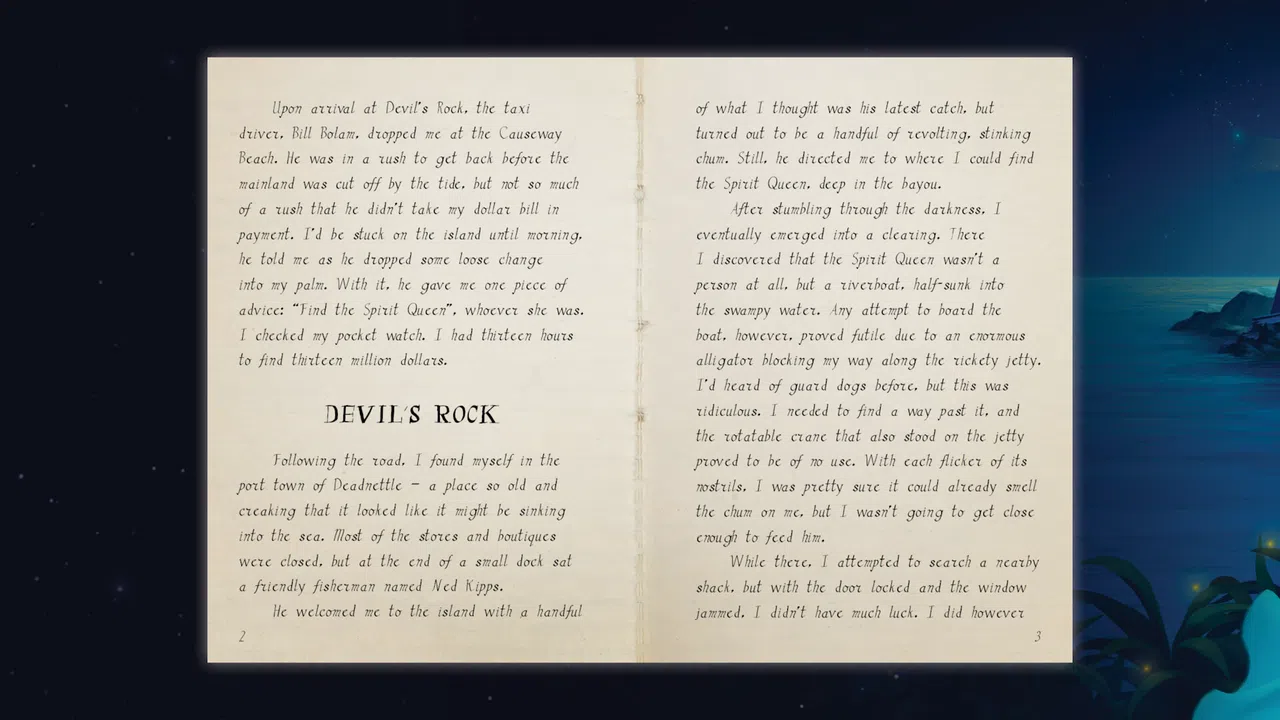 Upon arrival at Devil's Rock, the taxi
driver, Bill Bolam, dropped me at the Causeway
Beach. He was in a rush to get back before the
mainland was cut off by the tide, but not so much
of a rush that he didn't take my dollar bill in
payment. I'd be stuck on the island until morning,
he told me as he dropped some loose change
into my palm. With it, he gave me one piece of
advice: "Find the Spirit Queen", whoever she was.
I checked my pocket watch. I had thirteen hours
to find thirteen million dollars.
DEVIL'S ROCK
Following the road, I found myself in the
port town of Deadnettle – a place so old and
creaking that it looked like it might be sinking
into the sea. Most of the stores and boutiques
were closed, but at the end of a small dock sat
a friendly fisherman named Ned Kipps.
He welcomed me to the island with a handful
2
of what I thought was his latest catch, but
turned out to be a handful of revolting, stinking
chum. Still, he directed me to where I could find
the Spirit Queen, deep in the bayou.
After stumbling through the darkness, I
eventually emerged into a clearing. There
I discovered that the Spirit Queen wasn't a
person at all, but a riverboat, half-sunk into
the swampy water. Any attempt to board the
boat, however, proved futile due to an enormous
alligator blocking my way along the rickety jetty.
I'd heard of guard dogs before, but this was
ridiculous. I needed to find a way past it, and
the rotatable crane that also stood on the jetty
proved to be of no use. With each flicker of its
nostrils, I was pretty sure it could already smell
the chum on me, but I wasn't going to get close
enough to feed him.
While there, I attempted to search a nearby
shack, but with the door locked and the window
jammed, I didn't have much luck. I did however
3